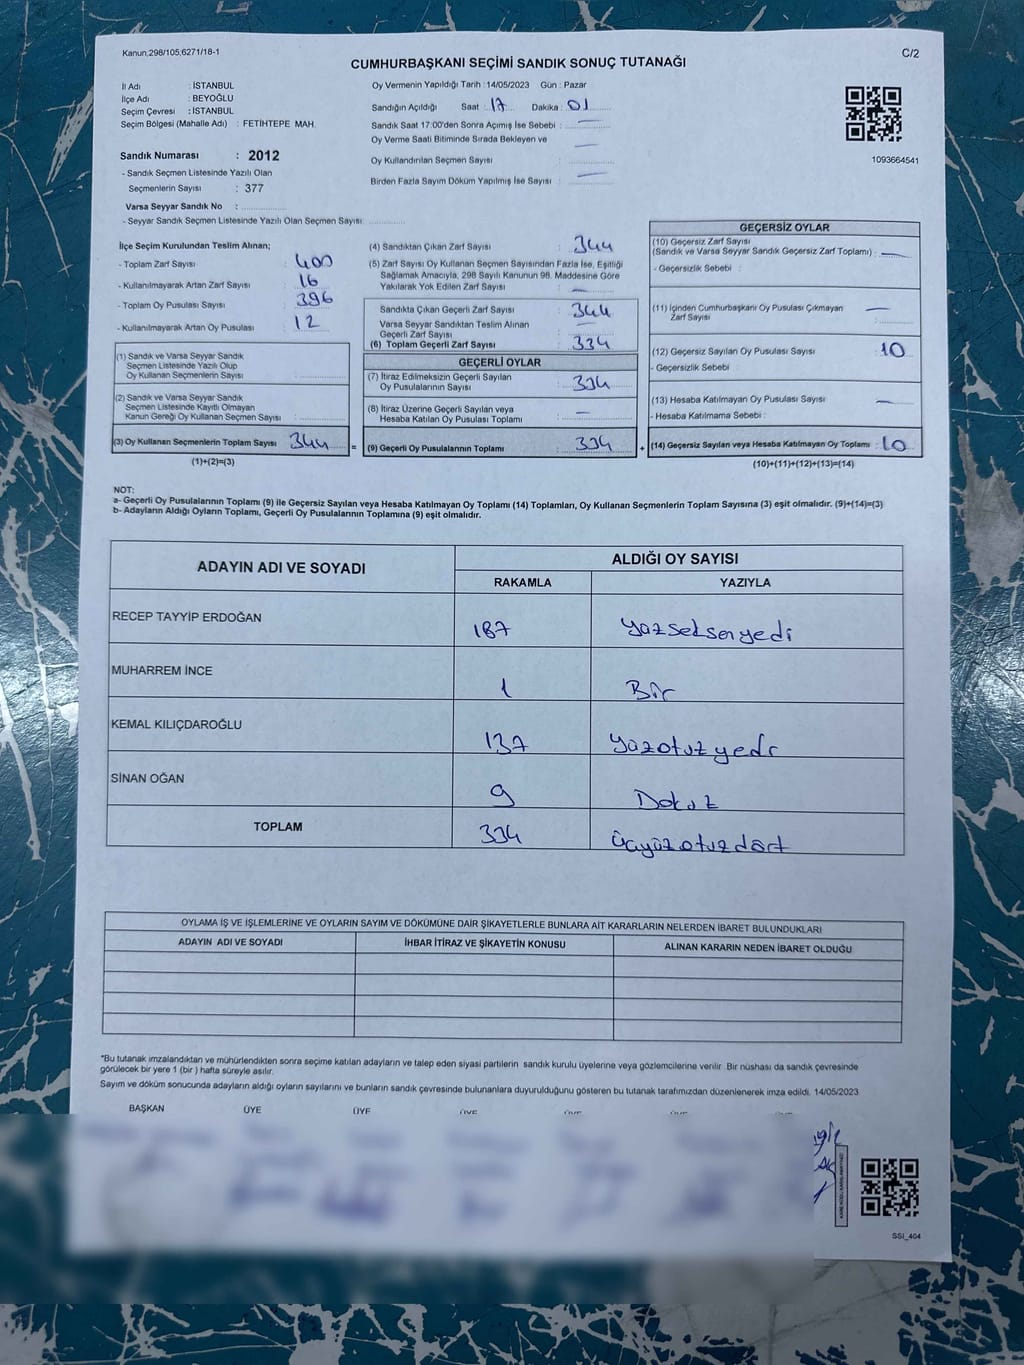 Kanun,298/105,6271/18-1
C/2
CUMHURBAŞKANI SEÇİMİ SANDIK SONUÇ TUTANAĞI
İl Adı : İSTANBUL
İlçe Adı : BEYOĞLU
Seçim Çevresi : İSTANBUL
Seçim Bölgesi (Mahalle Adı) : FETİHTEPE MAH.
Oy Vermenin Yapıldığı Tarih :14/05/2023 Gün : Pazar
Sandığın Açıldığı Saat : 17 Dakika : 01
Sandık Saat 17:00'den Sonra Açımış İse Sebebi : —
Oy Verme Saati Bitiminde Sırada Bekleyen ve
Oy Kullandırılan Seçmen Sayısı —
Birden Fazla Sayım Döküm Yapılmış İse Sayısı : —
1093664541
Sandık Numarası : 2012
- Sandık Seçmen Listesinde Yazılı Olan
Seçmenlerin Sayısı : 377
Varsa Seyyar Sandık No :
- Seyyar Sandık Seçmen Listesinde Yazılı Olan Seçmen Sayısı:
İlçe Seçim Kurulundan Teslim Alınan;
- Toplam Zarf Sayısı : 400
- Kullanılmayarak Artan Zarf Sayısı : 16
- Toplam Oy Pusulası Sayısı : 396
- Kullanılmayarak Artan Oy Pusulası : 12
(1) Sandık ve Varsa Seyyar Sandık
Seçmen Listesinde Yazılı Olup
Oy Kullanan Seçmenlerin Sayısı :
(2) Sandık ve Varsa Seyyar Sandık
Seçmen Listesinde Kayıtlı Olmayan
Kanun Gereği Oy Kullanan Seçmen Sayısı :
(3) Oy Kullanan Seçmenlerin Toplam Sayısı : 344 =
(1)+(2)=(3)
(4) Sandıktan Çıkan Zarf Sayısı : 344
(5) Zarf Sayısı Oy Kullanan Seçmen Sayısından Fazla İse, Eşitliği
Sağlamak Amacıyla, 298 Sayılı Kanunun 98. Maddesine Göre
Yakılarak Yok Edilen Zarf Sayısı : —
Sandıkta Çıkan Geçerli Zarf Sayısı : 344
Varsa Seyyar Sandıktan Teslim Alınan
Geçerli Zarf Sayısı : —
(6) Toplam Geçerli Zarf Sayısı : 334
GEÇERLİ OYLAR
(7) İtiraz Edilmeksizin Geçerli Sayılan
Oy Pusulalarının Sayısı : 334
(8) İtiraz Üzerine Geçerli Sayılan veya
Hesaba Katılan Oy Pusulası Toplamı : —
(9) Geçerli Oy Pusulalarının Toplamı : 334 +
GEÇERSİZ OYLAR
(10) Geçersiz Zarf Sayısı
(Sandık ve Varsa Seyyar Sandık Geçersiz Zarf Toplamı) : —
- Geçersizlik Sebebi :
(11) İçinden Cumhurbaşkanı Oy Pusulası Çıkmayan
Zarf Sayısı : —
(12) Geçersiz Sayılan Oy Pusulası Sayısı : 10
- Geçersizlik Sebebi
(13) Hesaba Katılmayan Oy Pusulası Sayısı : —
- Hesaba Katılmama Sebebi :
(14) Geçersiz Sayılan veya Hesaba Katılmayan Oy Toplamı : 10
(10)+(11)+(12)+(13)=(14)
NOT:
a- Geçerli Oy Pusulalarının Toplamı (9) ile Geçersiz Sayılan veya Hesaba Katılmayan Oy Toplamı (14) Toplamları, Oy Kullanan Seçmenlerin Toplam Sayısına (3) eşit olmalıdır. (9)+(14)=(3)
b- Adayların Aldığı Oyların Toplamı, Geçerli Oy Pusulalarının Toplamına (9) eşit olmalıdır.
ADAYIN ADI VE SOYADI
ALDIĞI OY SAYISI
RAKAMLA YAZIYLA
RECEP TAYYİP ERDOĞAN 187 yazseksenyedi
MUHARREM İNCE 1 Bir
KEMAL KILIÇDAROĞLU 137 yazotuzyedi
SİNAN OĞAN 9 Dokuz
TOPLAM 334 üçyüzotuzdört
OYLAMA İŞ VE İŞLEMLERİNE VE OYLARIN SAYIM VE DÖKÜMÜNE DAİR ŞİKAYETLERLE BUNLARA AİT KARARLARIN NELERDEN İBARET BULUNDUKLARI
ADAYIN ADI VE SOYADI İHBAR İTİRAZ VE ŞİKAYETİN KONUSU ALINAN KARARIN NEDEN İBARET OLDUĞU
*Bu tutanak imzalandıktan ve mühürlendikten sonra seçime katılan adayların ve talep eden siyasi partilerin sandık kurulu üyelerine veya gözlemcilerine verilir. Bir nüshası da sandık çevresinde
görülecek bir yere 1 (bir ) hafta süreyle asılır.
Sayım ve döküm sonucunda adayların aldığı oyların sayılarını ve bunların sandık çevresinde bulunanlara duyurulduğunu gösteren bu tutanak tarafımızdan düzenlenerek imza edildi. 14/05/2023
BAŞKAN ÜYE ÜYE ÜYE ÜYE ÜYE ÜYE
SSI_404